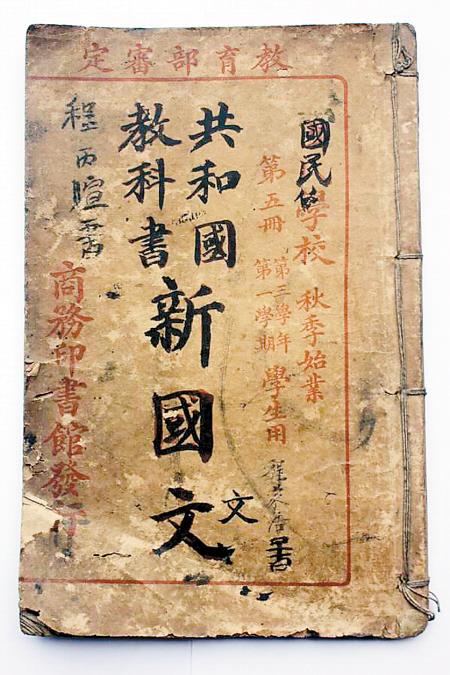 教育部審定
國民學校 秋季始業
第五冊 第三學年 第一學期 學生用
共和國
教科書
新國文
文
程丙暄書
商務印書館發行